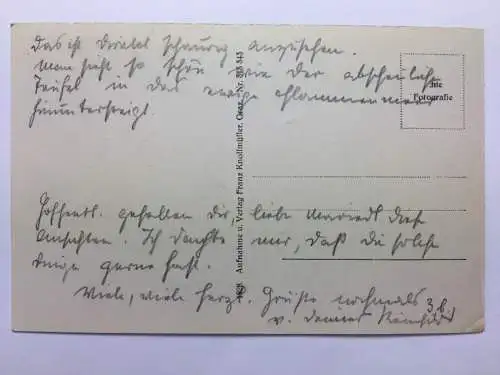 Das ist direkt schaurig anzusehen.
Man sieht so schön wie der abscheuliche
Teufel in das ewige Flammenmeer
hinuntersteigt.
Hoffentl. gefallen Dir, liebe Mariedl diese
Ansichten. Ich dachte mir, daß Du solche
Dinge gerne hast.
Viele, viele herzl. Grüße nochmals
v. Deiner
Fotografie
Aufnahme u. Verlag Franz Knollmüller, Graz. Nr.